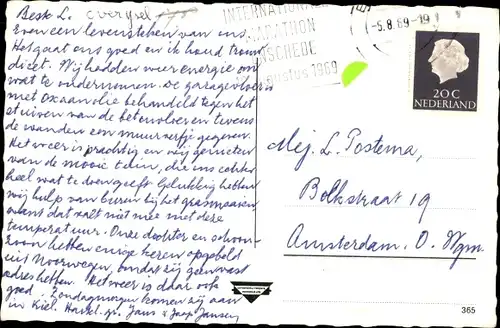 Beste L.
even een levensteken van ons.
Het gaat ons goed en ik houd trouw
dieet. Wij hadden weer energie om
wat te ondernemen. De garagevloer is
met oxaanolie behandeld tegen het
stuiven van de betonvloer en tevens
de wanden een muurverfje gegeven.
Het weer is prachtig en wij genieten
van de mooie tuin, die ons echter
heel wat te doen geeft. Gelukkig hebben
wij hulp van buren bij het grasmaaien
want dat valt niet mee met deze
temperatuur. Onze dochter en schoon-
zoon hebben enige keren opgebeld
uit Noorwegen, omdat zij geen vast
adres hebben. Het weer is daar ook
goed. Zondagmorgen komen zij aan
in Kiel. Hartel. gr. Jans & Jaap Jansen
INTERNATIONALE
MARATHON
ENSCHEDE
augustus 1969
-5.8.69-19
20 C
NEDERLAND
Mej. L. Postema,
Balkstraat 19
Amsterdam O. Wgm.
365